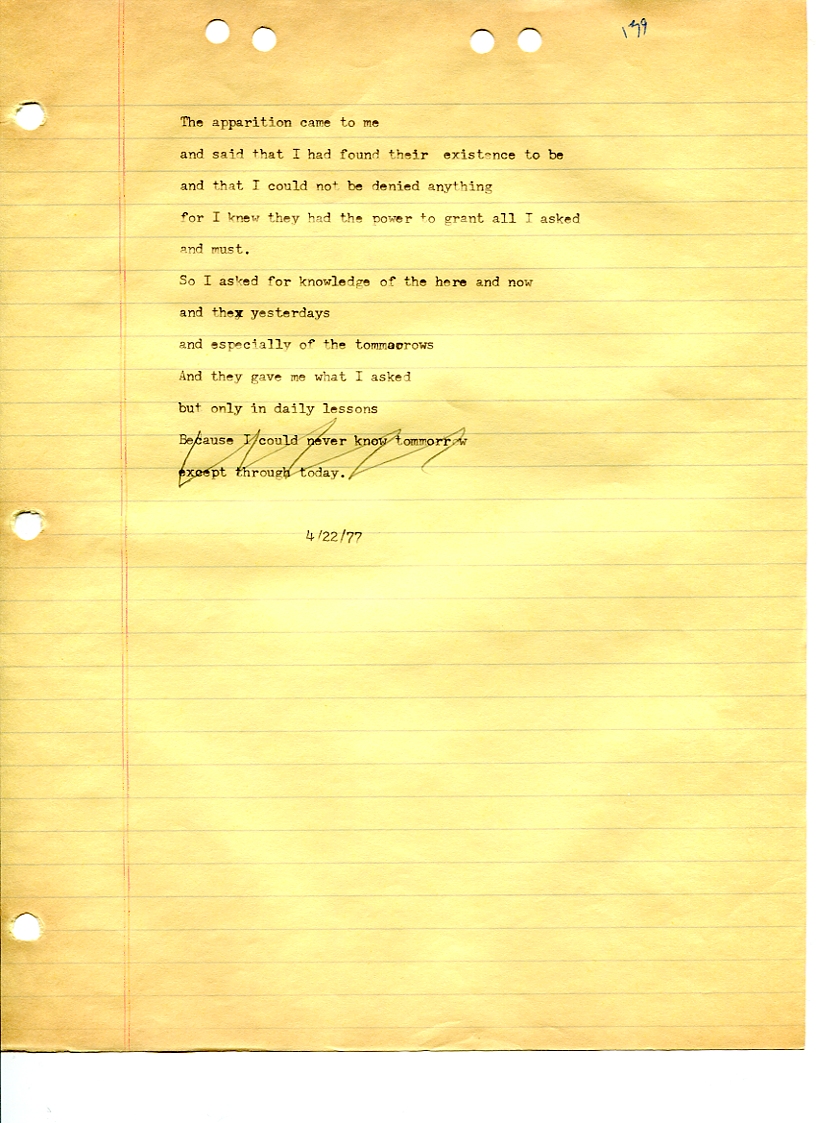 199
The apparition came to me
and said that I had found their existence to be
and that I could not be denied anything
for I knew they had the power to grant all I asked
and must.
So I asked for knowledge of the here and now
and thex yesterdays
and especially of the tommaorows
And they gave me what I asked
but only in daily lessons
Because I could never know tommorrow
except through today.
4/22/77